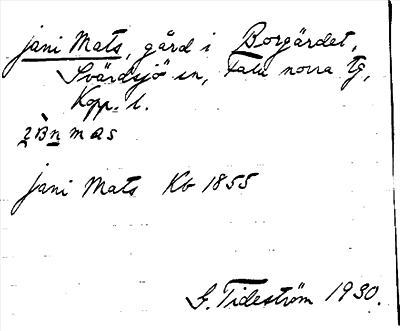 Jani Mats, gård i Borgärdet,
Svärdsjö sn, Falu norra tg,
Kopp. l.
mas
Jani Mats Kb 1855
G. Tideström 1930.